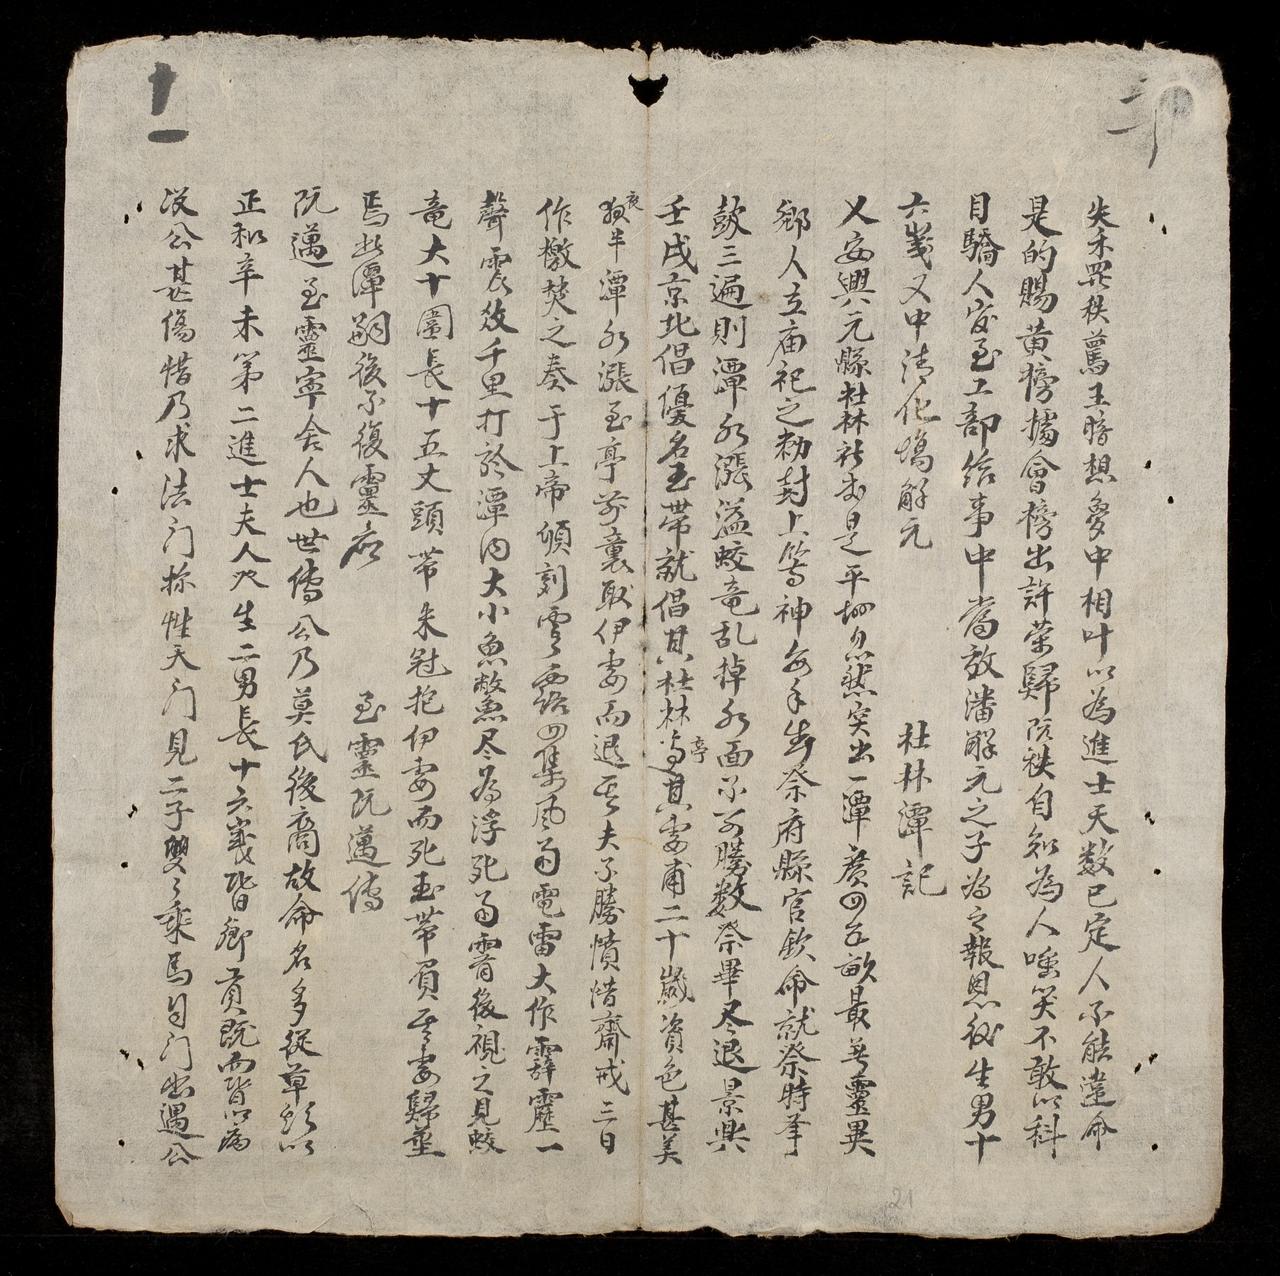 失禾哭秩罵王暗想夢中相叶以為進士天数已定人不能違命
是的賜黄榜據會榜出許荣歸阮秩自知為人嗤笑不敢以科
目驕人宦至工部給事中嵩敖潘解元之子為之報恩後生男十
六歲又中清化塲解元
杜林潭記
乂安興元縣杜林社本是平地忽然突出一潭廣四五畝最著靈異
鄉人立庙祀之勅封上等神每年岀祭府縣官欽命就祭時挙
皷三遍則潭水漲溢蛟竜乱掉水面不可勝数祭畢尽退景興
壬戌京北倡優名玉帶就倡其杜林亭其妻甫二十歲資色甚美
夜半潭水漲至亭前裏取伊妻而退其夫不勝憤惜齋戒三日
作檄焚之奏于上帝頃刻雲霧四集風雨電雷大作霹靂一
聲震發千里打於潭内大小魚鱉尽為浮死雨霽後視之見蛟
竜大十圍長十五丈頭帶朱冠抱伊妻而死玉帶負其妻歸塟
焉此潭嗣後不復靈應
至靈阮邁傳
阮邁至靈寧舍人也世傳公乃莫氏後裔故命名多從草頭以
正和辛未第二進士夫人双生二男長十六歲皆鄉貢既而皆以病
没公甚傷惜乃求法门掠性天门見二子雙々乘馬自门出遇公